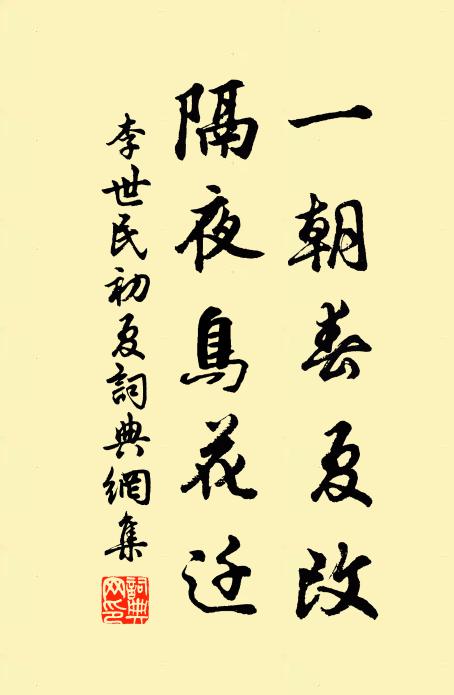 一朝春夏改
隔夜鳥花迁
李世民初夏詞典網集
詞典網印